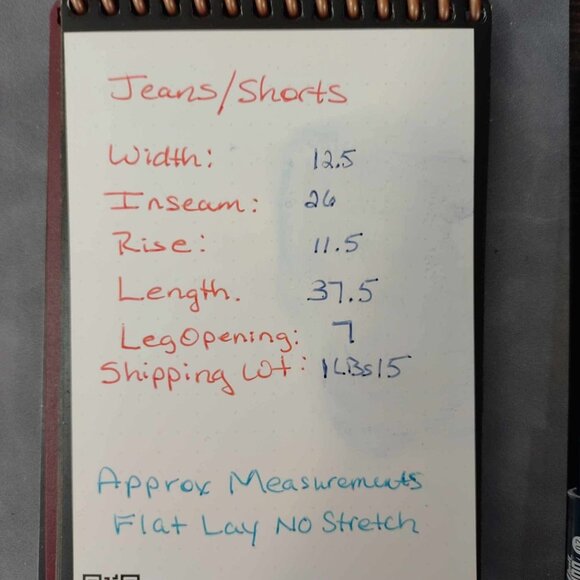 Jeans/Shorts
Width: 12.5
Inseam: 26
Rise: 11.5
Length. 37.5
Leg Opening: 7
Shipping Wt: 1LBs15
Approx Measurements
Flat Lay No Stretch